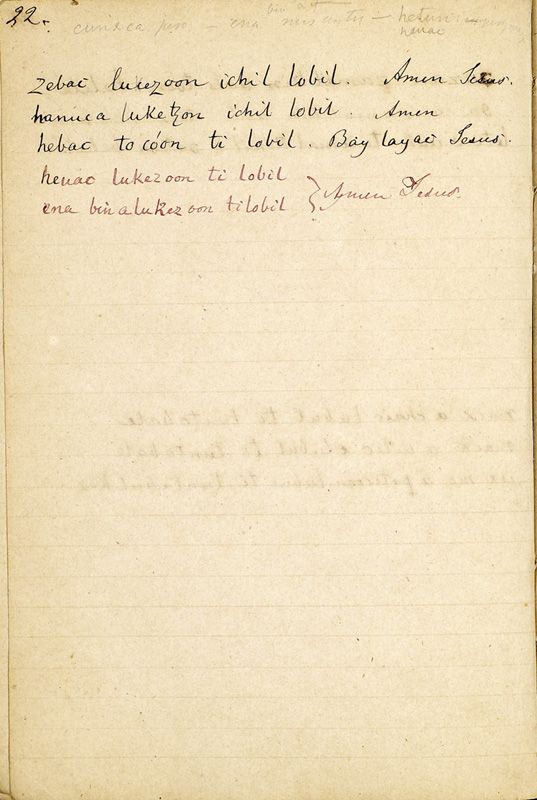 22.
cunxca peso – ena bin at – hetun
henac
zebac lucezoon ichil lobil. Amen Jesus.
hanuca luketzon ichil lobil. Amen
hebac to cóon ti lobil. Bay layac Jesus.
henac lukezoon ti lobil
ena bin a lukez oon ti lobil } Amen Jesus.